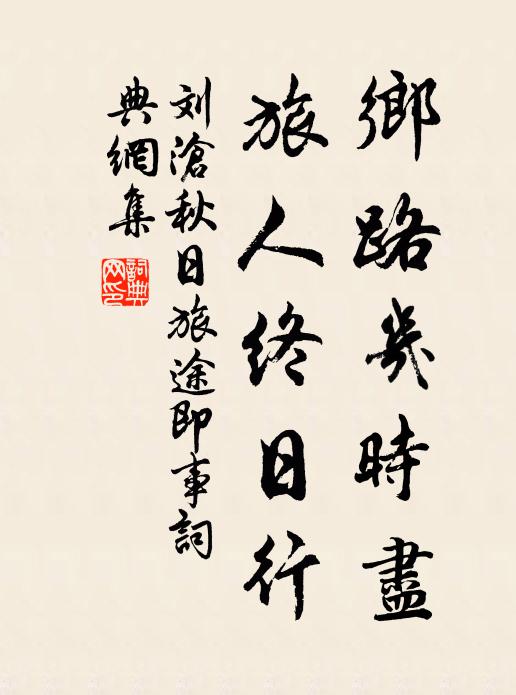 鄉路幾時盡
旅人終日行
刘滄秋日旅途即事詞
典網集
詞典
网印